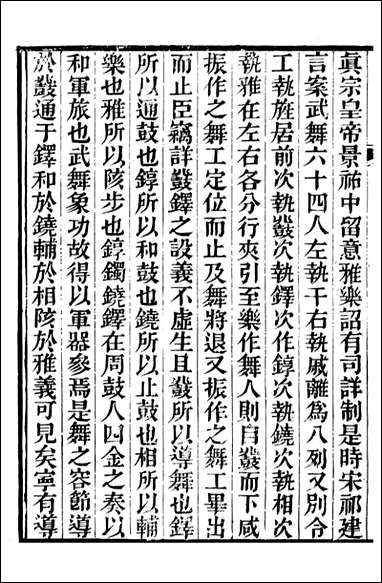 眞宗皇帝景祐中留意雅樂詔有司詳制是時宋祁建
言案武舞六十四人左執干右執戚離爲八列又別令
工執旌居前次執鼗次執鐸次作錞次執鐃次執相次
執雅在左右各分行夾引至樂作舞人則自鼗而下咸
振作之舞工定位而止及舞將退又振作之舞工畢出
而止臣竊詳鼗鐸之設義不虛生且鼗所以導舞也鐸
所以通鼓也錞所以和鼓也鐃所以止鼓也相所以輔
樂也雅所以陔步也錞鐲鐃鐸在周鼓人四金之奏以
和軍旅也武舞象功故得以軍器參焉是舞之容節導
於鼗通于鐸和於鐃輔於相陔於雅義可見矣寧有導